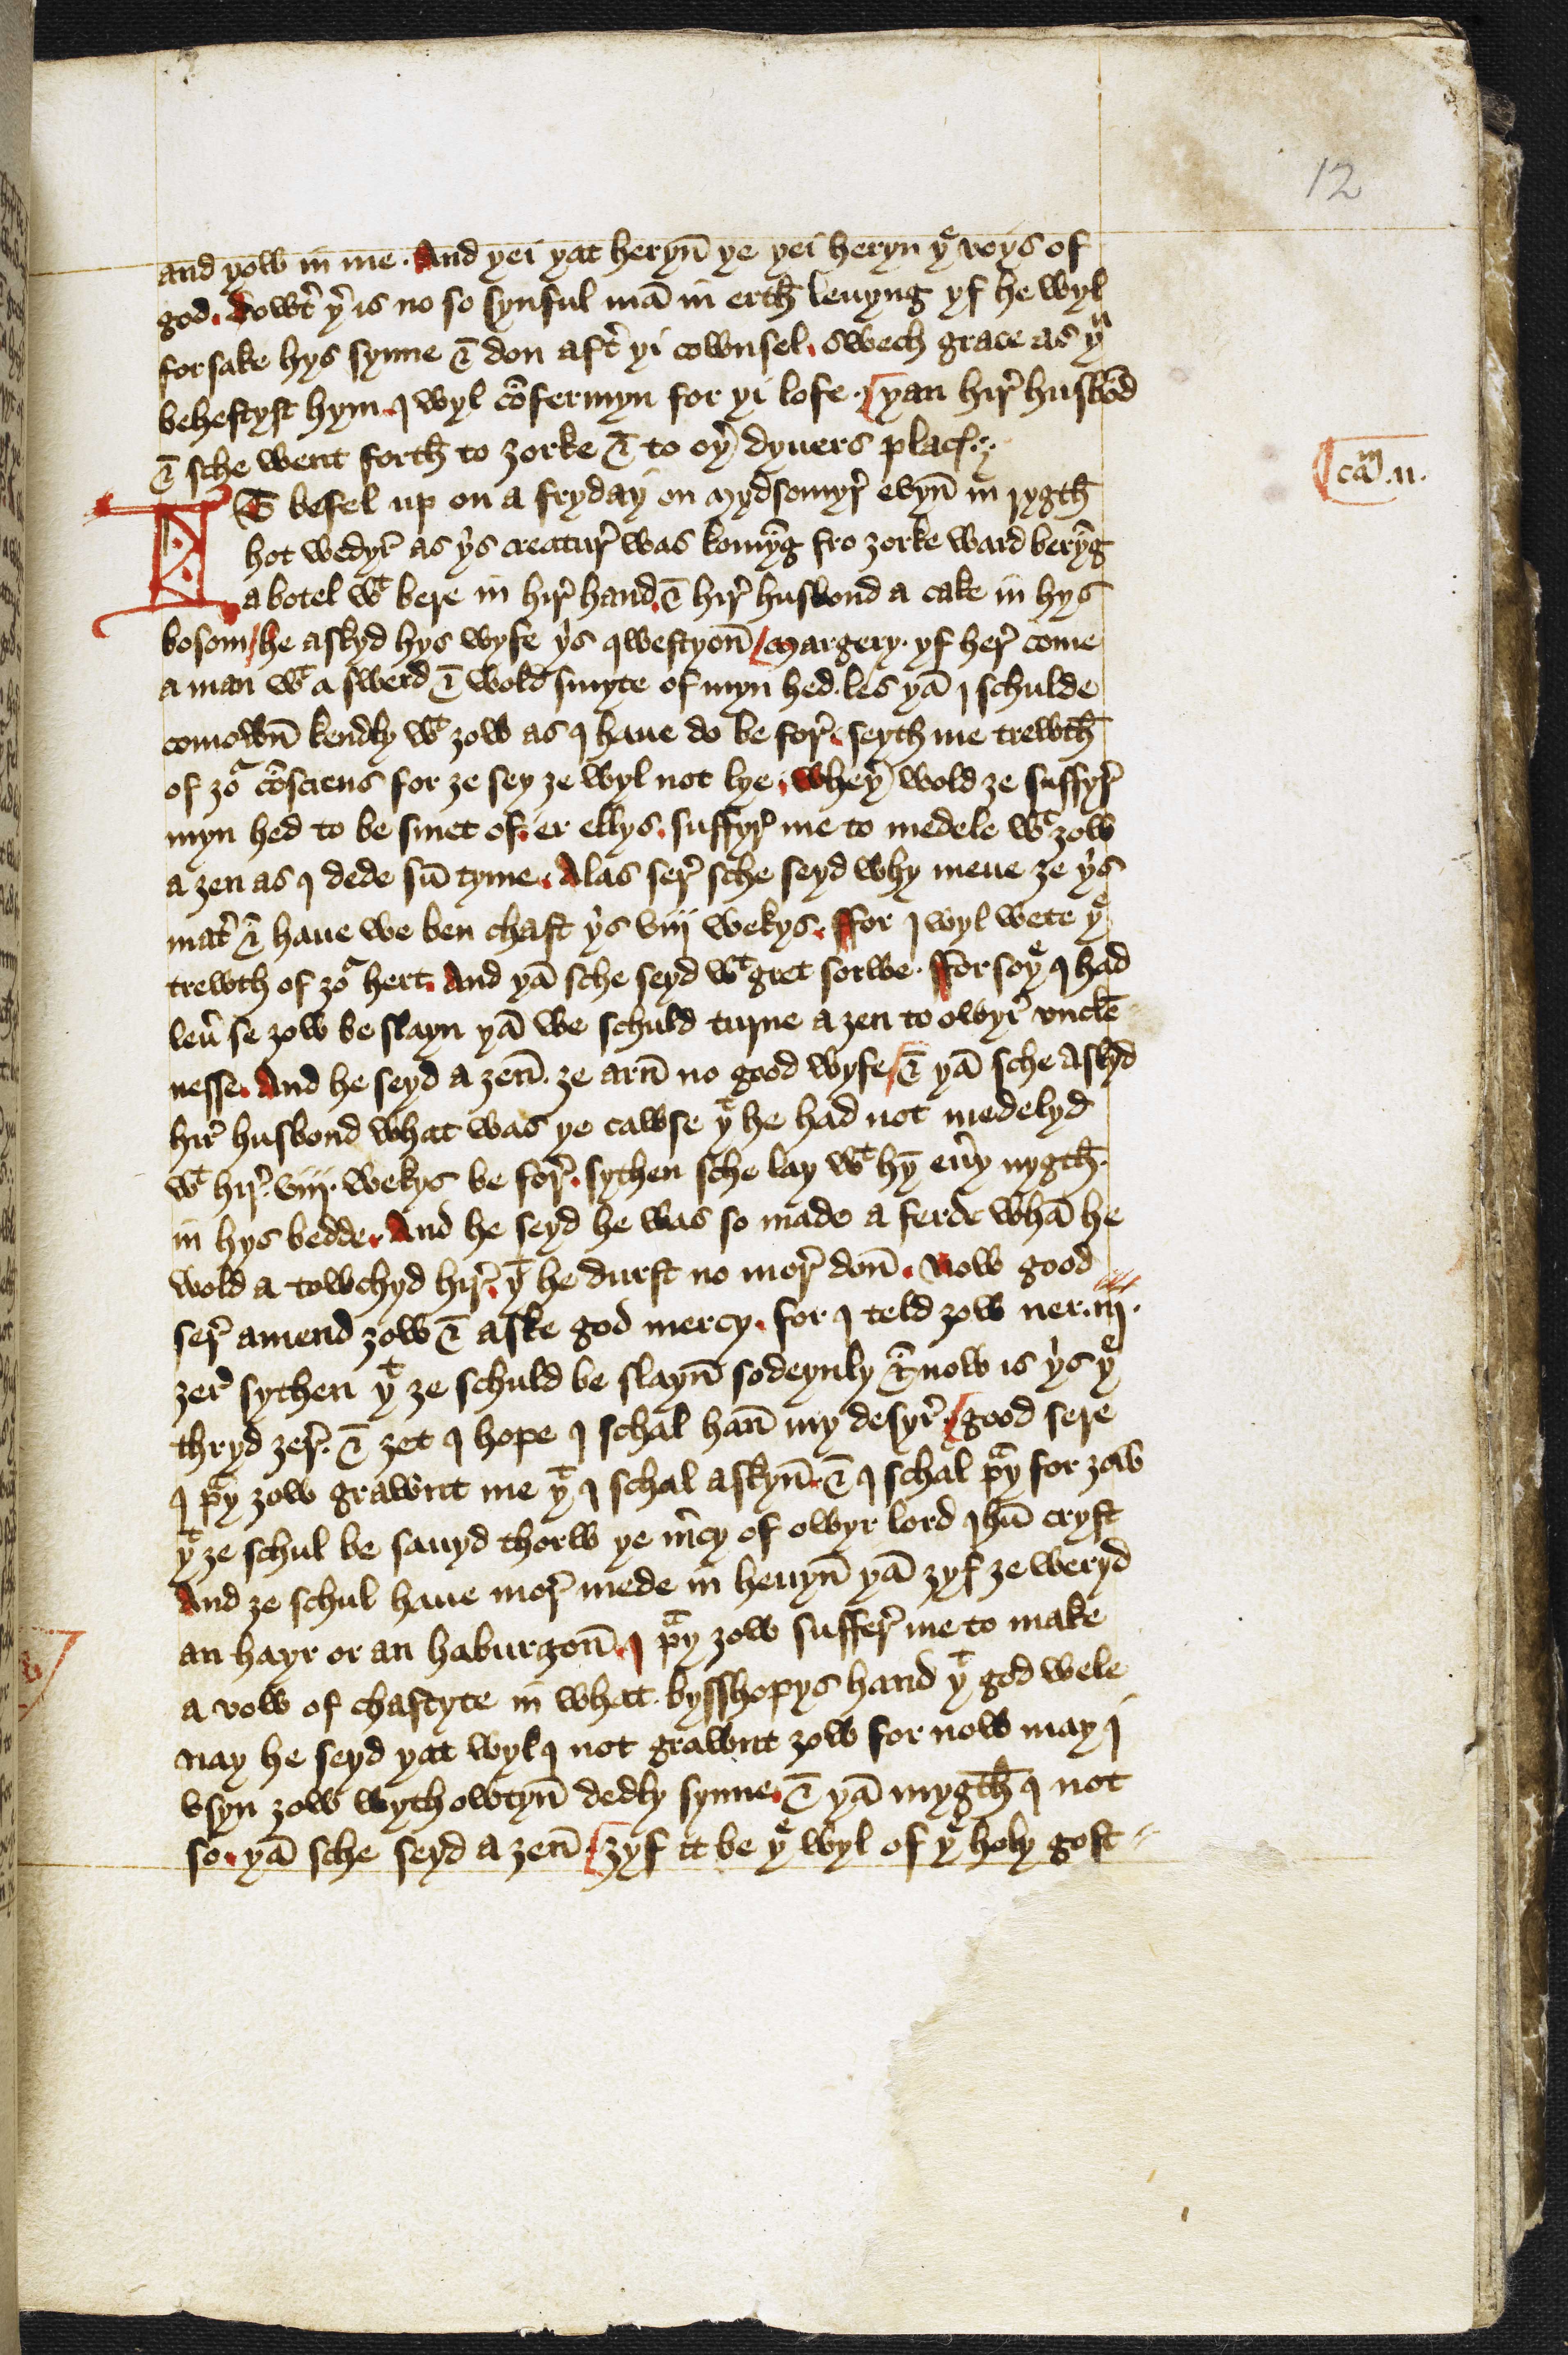 12
and yow in me. And yei yat heryn̄ ye yei heryn yͤ voys of
god. Dowt̉ yͬ is no so synful mā in erth̄ leuyng yf he wyl
forsake hys synne & don aft̉ yi cownsel. swech grace as yͧ
behestyst hym. I wyl cōfermyn for yi lofe. yan hir̉ husbōd
& sche went forth̄ to ȝorke & to oyͬ dyuers plac̉.
cam. 11.
IT befel up on a fryday on Mydsomyr̉ evyn̄ in rygth̄
hot wedyr̉ as yͥs creatur̉ was komȳg fro ȝorke ward berȳg
a botel wͭ bere in hir̉ hand. & hir̉ husbond a cake in hys
bosom / he askyd hys wyfe yͥs qwestyon̄ / Margery. yf her̉ come
a man wͭ a swerd & wold smyte of myn hed. les yā I schulde
comown̄ kendly wͭ ȝow as I haue do be for̉. seyth me trewth̄
of ȝoͬ cōsciens for ȝe sey ȝe wyl not lye. wheyͬ wold ȝe suffyr̉
myn hed to be smet of. er ellys. suffyr̉ me to medele wͭ ȝow
a ȝen as I dede sū tyme. Alas ser̉ sche seyd why meue ȝe yͥs
mat̉ & haue we ben chast yͥs viij wekys. ffor I wyl wete yͤ
trewth of ȝoͬ hert. And yā sche seyd wͭ gret sorwe. ffor soyͤ I had
leủ se ȝow be slayn yā we schuld turne a ȝen to owyr̉ vnclē
nesse. And he seyd a ȝen̄. ȝe arn̄ no good wyfe / & yā sche askyd
hir̉ husbond what was ye cawse yͭ he had not medelyd
wͭ hir̉. viij. wekys be for̉. sythen sche lay wͭ hȳ eủy nygth̄.
in hys bedde. And he seyd he was so made a ferde whā he
wold a towchyd hir̉. yͭ he durst no mor̉ don̄. Now good
ser̉ amend ȝow & aske god mercy. for I teld ȝow ner. iij.
ȝer̉ sythen yͭ ȝe schuld be slayn̄ sodeynly & now is yͥs yͤ
thryd ȝer̉. & ȝet I hope I schal han̄ my desyr̉. / good sere
I pͣy ȝow grawnt me yͭ I schal askyn̄. & I schal pͣy for ȝow
yͭ ȝe schul be sauyd thorw ye m̉cy of owyr lord Ihū cryst
And ȝe schul haue mor̉ mede in heuyn̄ yā ȝyf ȝe weryd
an hayr or an haburgon̄. I pͣy ȝow suffer̉ me to make
a vow of chastyte in what. bysshopys hand yͭ god wele
nay he seyd yat wyl I not grawnt ȝow for now may I
vsyn ȝow wythowtyn̄ dedly synne. & yā mygth̄ I not
so. yā sche seyd a ȝen̄. / ȝyf it be yͤ wyl of yͤ holy gost